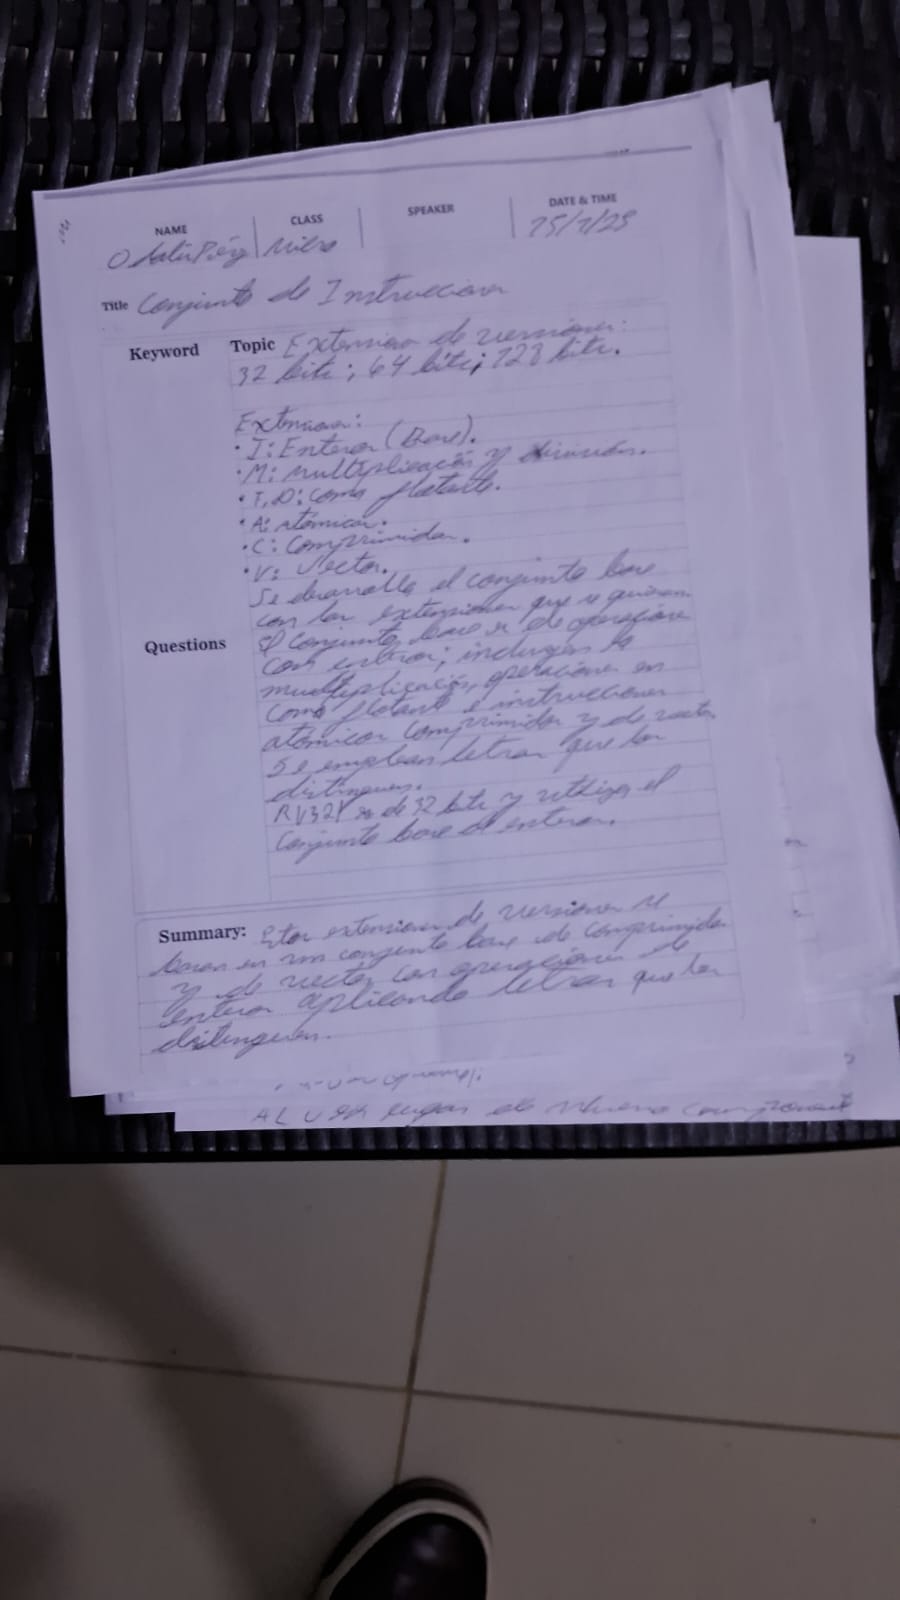 NAME CLASS SPEAKER DATE & TIME
Micro 25/7/25
Title Conjunto de Instrucciones
Keyword Topic Extension de versiones:
32 bits; 64 bits; 128 bits.
Extensiones:
• I: Enteros (Base).
• M: multiplicación y división.
• F, D: coma flotante.
• A: atómicas.
• C: Comprimidas.
• V: Vector.
Se desarrolla el conjunto base
con las extensiones que se quieran
Questions El conjunto base es de operaciones
con enteros; incluyen la
multiplicación, operaciones en
coma flotante e instrucciones
atómicas comprimidas y de vector
Se emplean letras que las
distinguen.
RV32I es de 32 bits y utiliza el
conjunto base de enteros.
Summary: Estas extensiones de versiones se
basan en un conjunto base de comprimidas
y de vector con operaciones de
enteros aplicando letras que las
distinguen.
ALU en lugar de